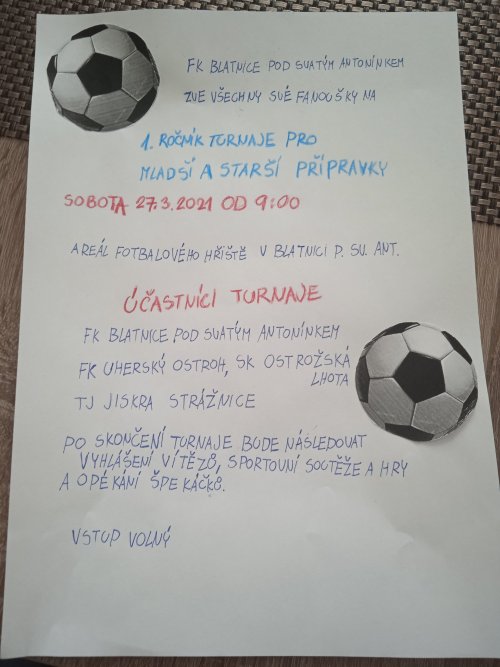 FK BLATNICE POD SVATÝM ANTONÍNKEM
ZVE VŠECHNY SVÉ FANOUŠKY NA
1. ROČNÍK TURNAJE PRO
MLADŠÍ A STARŠÍ PŘÍPRAVKY
SOBOTA 27.3.2021 OD 9:00
AREÁL FOTBALOVÉHO HŘIŠTĚ V BLATNICI P. SV. ANT.
ÚČASTNÍCI TURNAJE
FK BLATNICE POD SVATÝM ANTONÍNKEM
FK UHERSKÝ OSTROH, SK OSTROŽSKÁ
LHOTA
TJ JISKRA STRÁŽNICE
PO SKONČENÍ TURNAJE BUDE NÁSLEDOVAT
VYHLÁŠENÍ VÍTĚZŮ, SPORTOVNÍ SOUTĚŽE A HRY
A OPÉKÁNÍ ŠPEKÁČKŮ.
VSTUP VOLNÝ